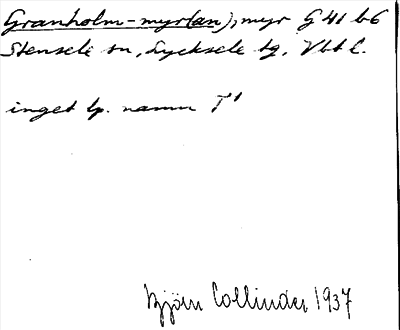 Granholm-myr(an), myr G 41 b6
Stensele sn, Lycksele tg, Vbt l.
inget lp. namn T¹
Björn Collinder 1937